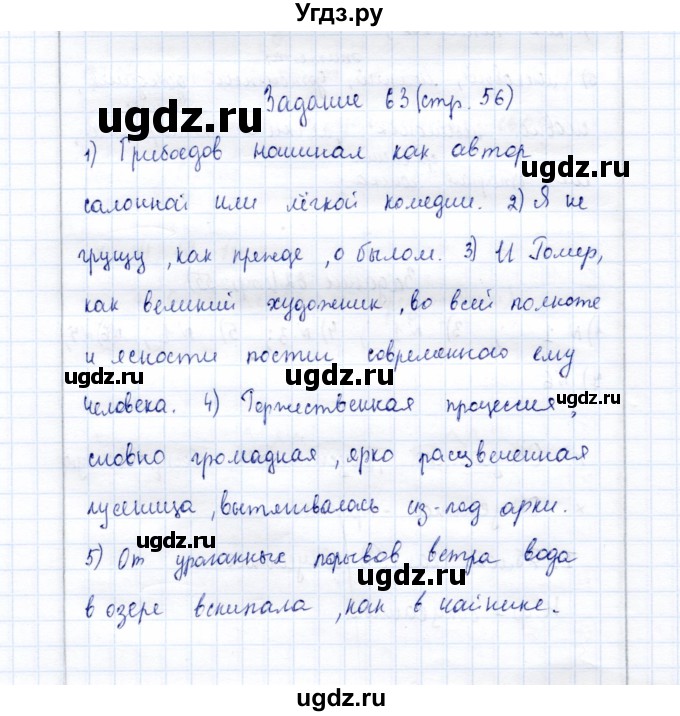 Угдз.ру
Задание 63 (стр. 56)
ugdz.ru
ugdz.ru
1) Грибоедов начинал как автор
салонной или лёгкой комедии. 2) Я не
грущу, как прежде, о былом. 3) И Гомер,
ugdz.ru
как великий художник, во всей полноте
и ясности постиг современного ему
ugdz.ru
ugdz.ru
человека. 4) Торжественная процессия,
ugdz.ru
словно громадная, ярко расцвеченная
ugdz.ru
гусеница, вытягивалась из-под арки.
ugdz.ru
5) От ураганных порывов ветра вода
ugdz.ru
в озере вскипала, как в чайнике.
ugdz.ru